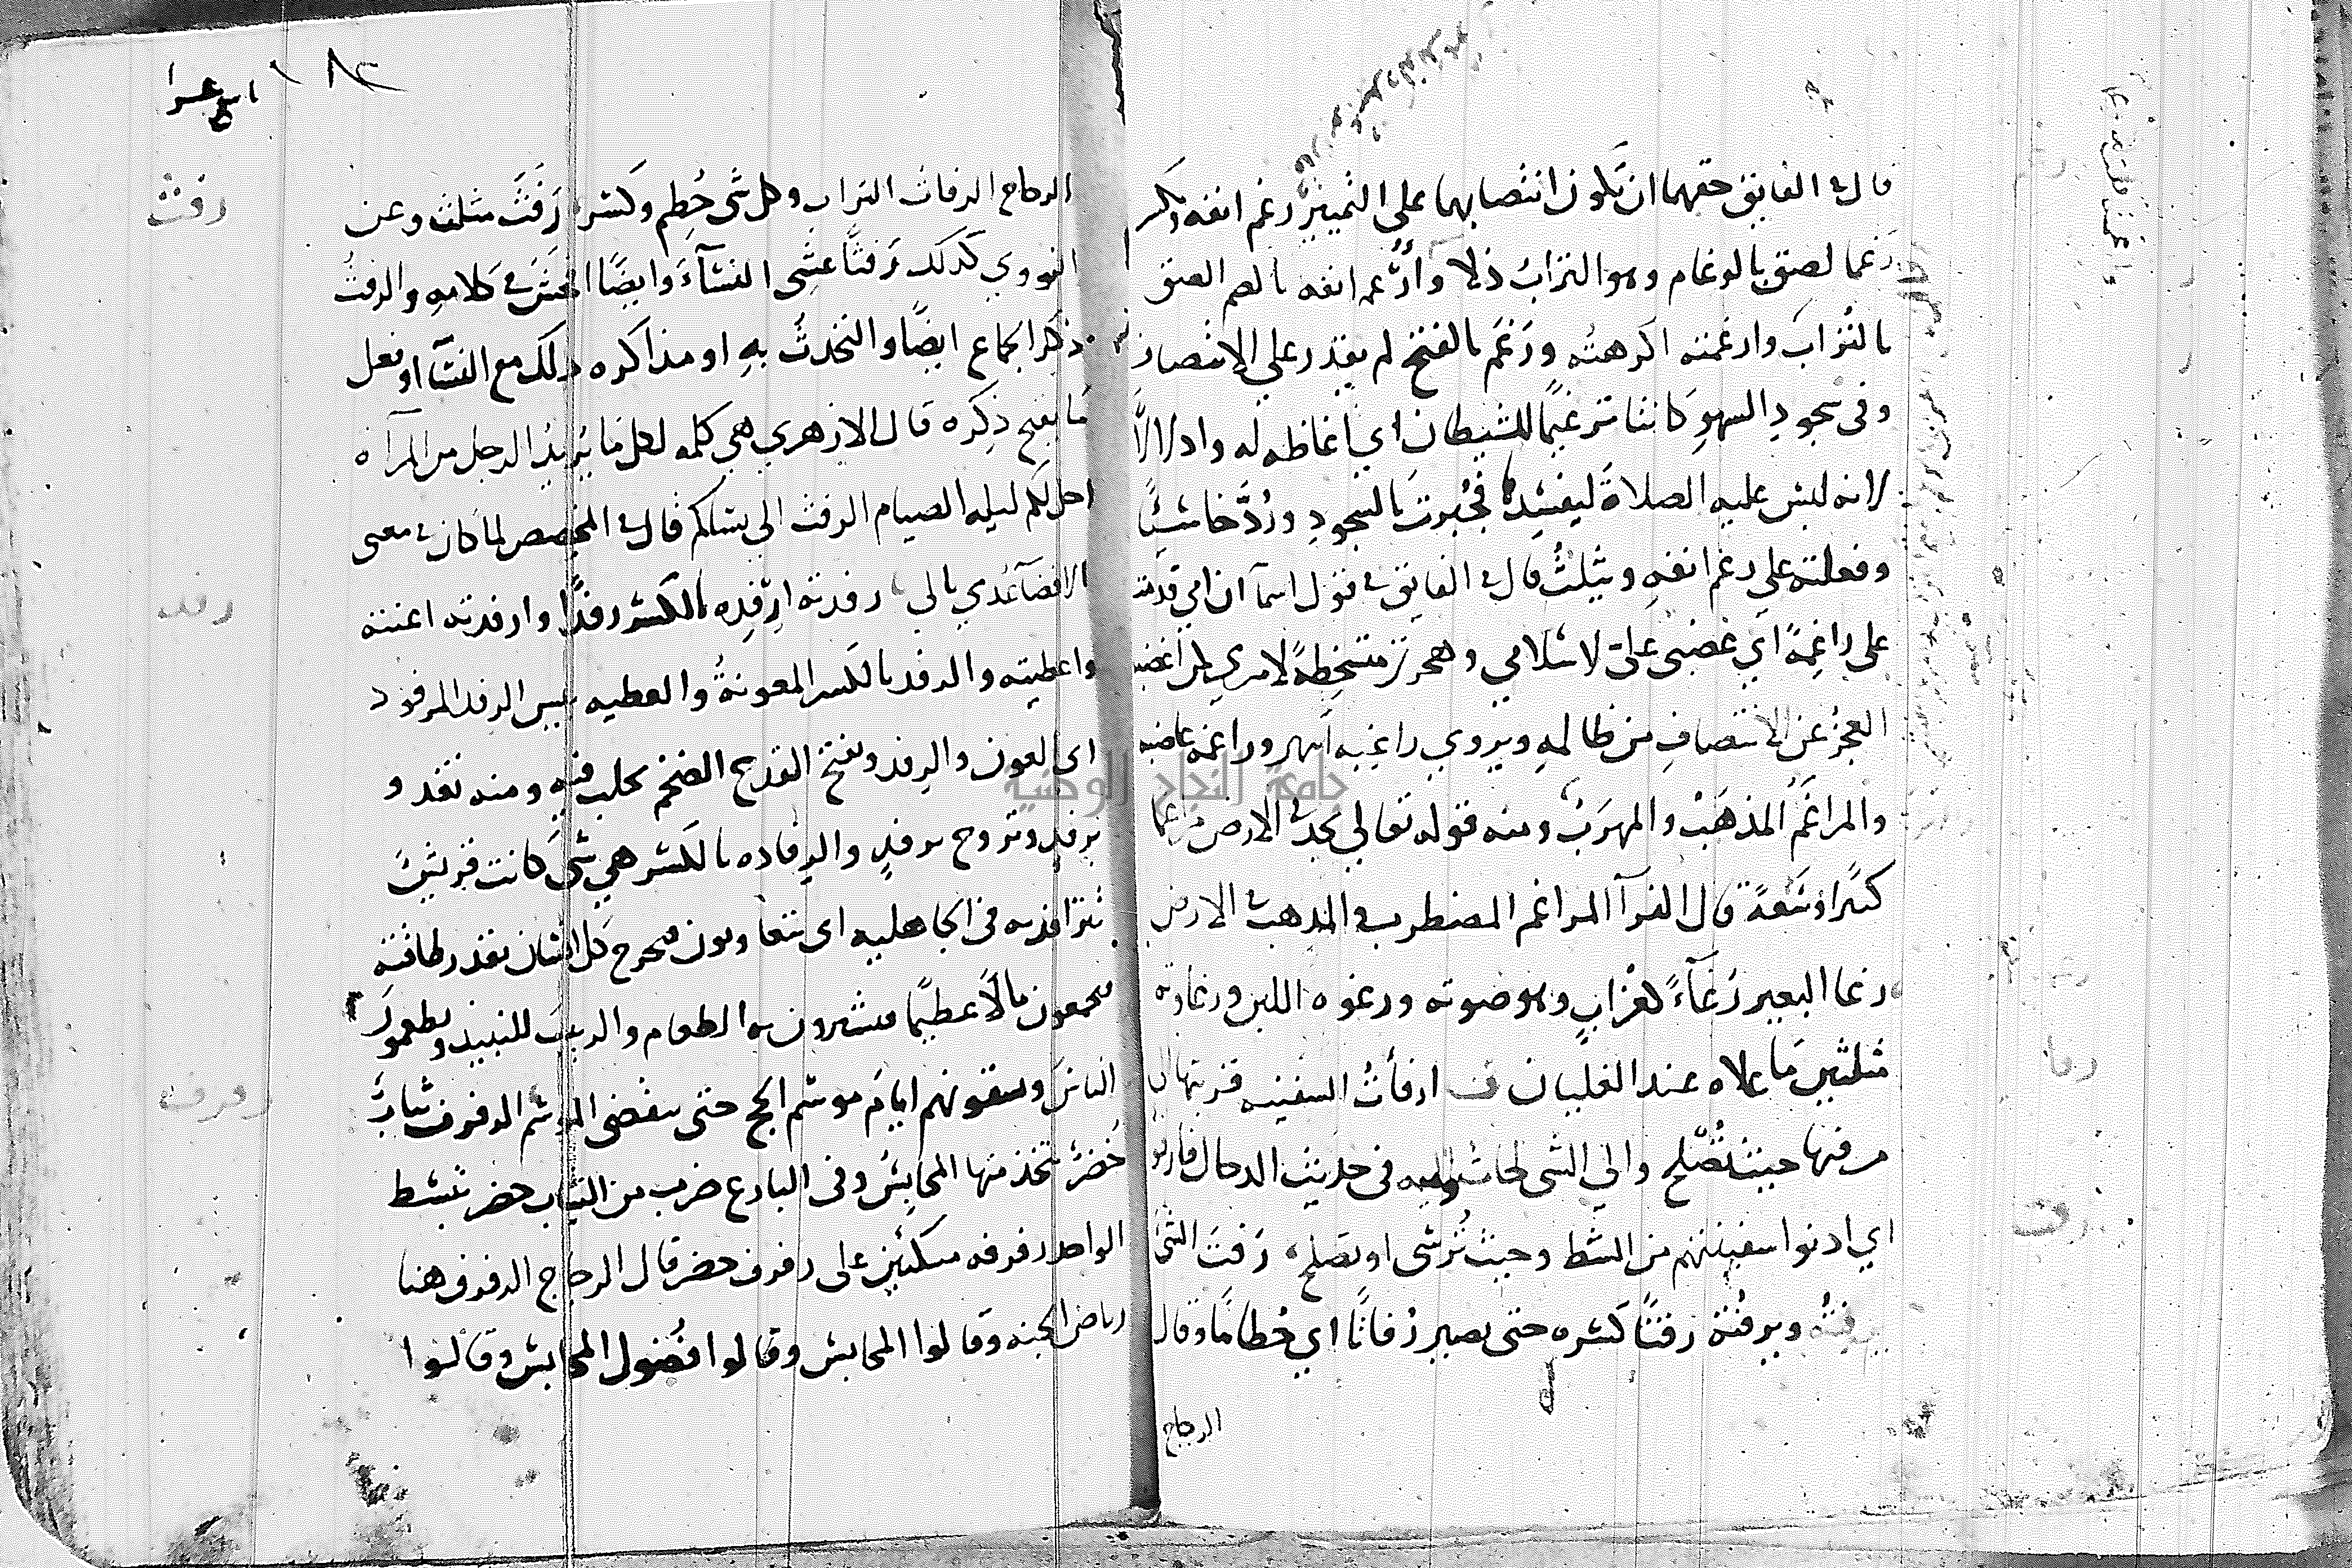 قال في الفايق حقهما ان يكون انتصابهما على التمييز رغم انفه وكسر
رغما لصق بالرغام وهو التراب ذلا وارغم انفه بالضم الصق
بالتراب وارغمته اكرهته ورغم بالفتح لم يقدر على الانتصاف
وفي سجود السهو كانتا ترغيما للشيطان اي اغاظه له واذلالا
لانه لبس عليه الصلاة ليفسدها فجبرت بالسجود ورد خاسئا
وفعلته على رغم انفه ويثلث قال في الفايق في قول اسمآ ان امي قدمت
على راغمة اي غضبى على لاسلامي وهجرتي متسخطة لامري
العجز عن الانتصاف من ظالمه ويروي
والمراغم المذهب والمهرب ومنه قوله تعالى يجد في الارض مراغما
كثيرا وسعة قال الفرآ المراغم المضطرب والمذهب في الارض
رغا البعير رغآء كغراب وهو صوته ورغوه اللبن ورغاوته
مثلثين ما علاه عند الغليان ارفأت السفينه قربتها الى
مرفئها حيث تصلح والى الشي لجات اليه في حديث الدجال
اي ادنوا سفينتهم من الشط وحيث ترسى او تصلح رفت الشي
يرفته ويرفته رفتا كسره حتى يصير رفاتا اي حطاما وقال
الزجاج
رفا
رفت
١٨٢
الزجاج الرفات التراب وكل شي حطم وكسر رفث مثلث وعن
النووي كذلك رفثا غشى النسآء وايضا افحش في كلامه والرفث
ذكر الجماع ايضا والتحدث به او مذاكره ذلك مع النسآ او فعل
ما يقبح ذكره قال الازهري هي كلمه لكل ما يريد الرجل من المرآه
احل لكم ليله الصيام الرفث الى نسائكم قال في لما كان في معنى
الافضآ عدي بالى رفدته ارفده بالكسر رفدا وارفدته اعنته
واعطيته والرفد بالكسر المعونة والعطيه بيس الرفد المرفود
اي العون والرفد وبفتح القدح الضخم يحلب فيه ومنه تغدو
برفد وتروح برفد والرفاده بالكسر هي شي كانت قريش
تترافد به في الجاهليه اي تتعاونون فيخرج كل انسان بقدر طاقته
فيجمعون مالا عظيما فيشترون به الطعام والزبيب للنبيذ ويطعمون
الناس ويسقونهم ايام موسم الحج حتى ينقضي الموسم الرفرف ثياب
خضر تتخذ منها المحابس وفي البارع ضرب من الثياب خضر تبسط
الواحد رفرفه متكئين على رفرف خضر قال الزجاج الرفرف هنا
رياض الجنه وقالوا المحابس وقالوا فضول المحابس وقالوا
رفث
رفد
رفرف